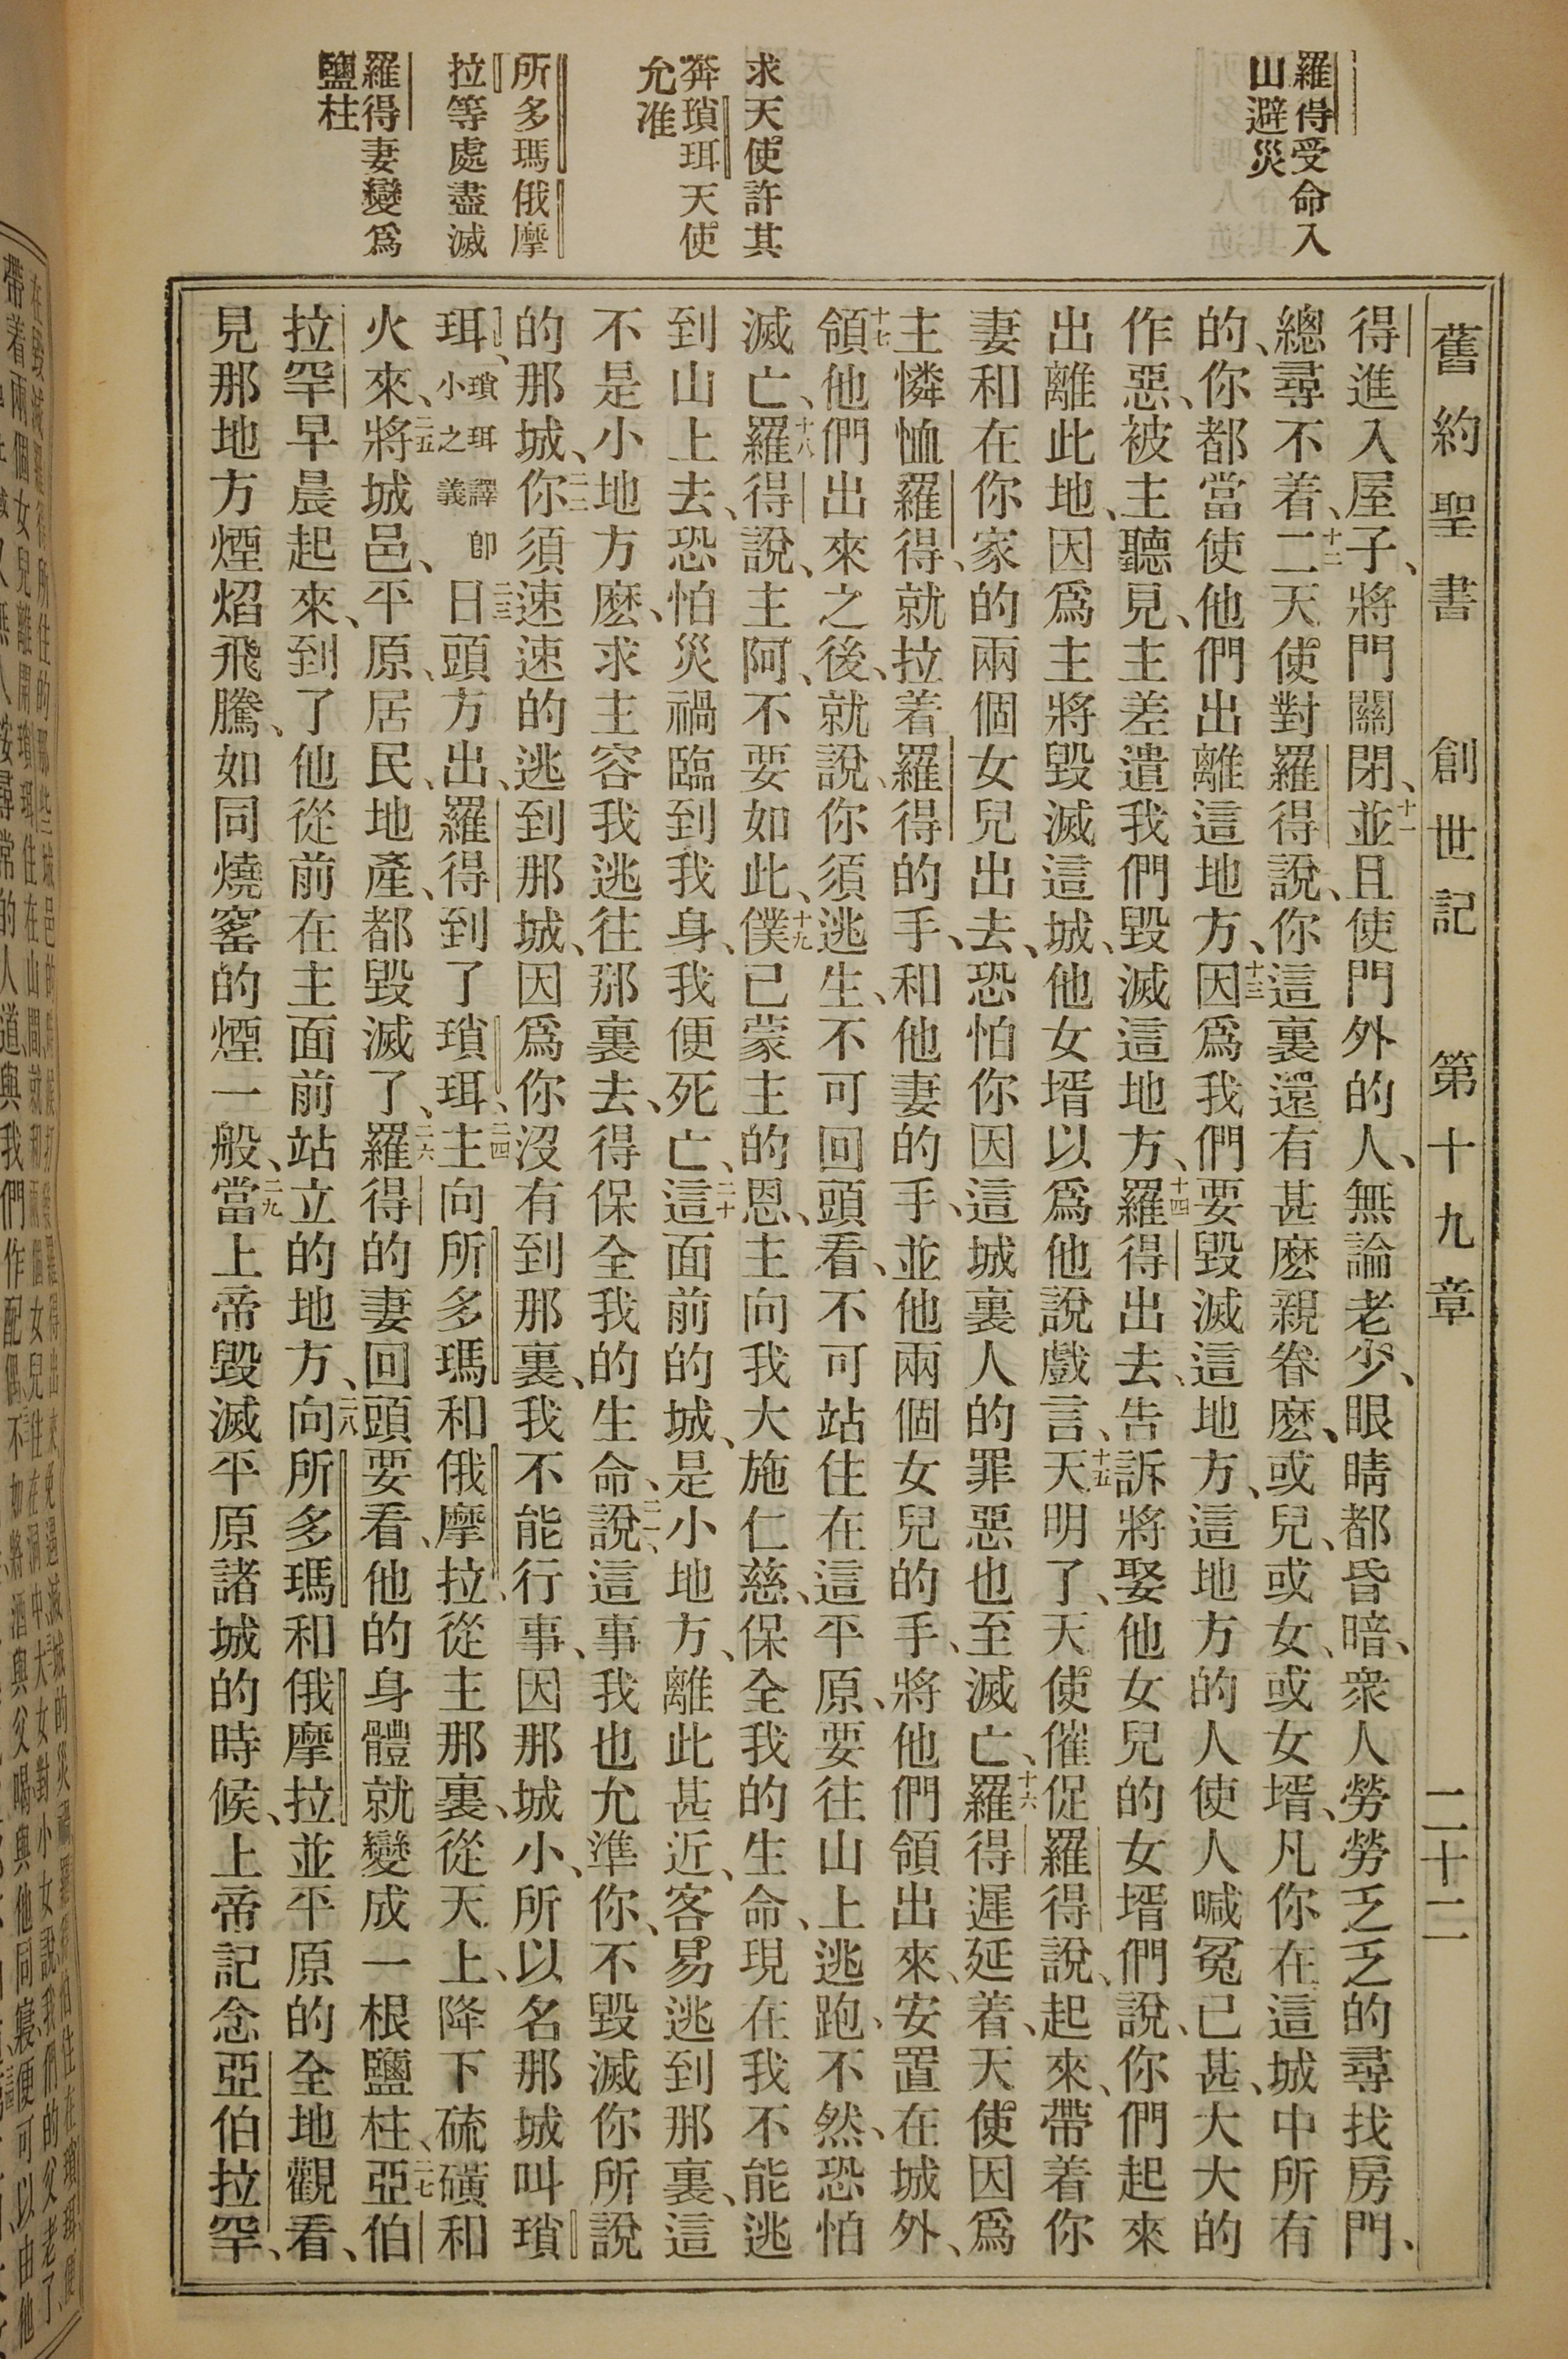 舊約聖書 創世記 第十九章 二十二
羅得受命入
山避災
求天使許其
奔瑣珥天使
允准
所多瑪俄摩
拉等處盡滅
羅得妻變爲
鹽柱
得進入屋子、將門關閉、十一並且使門外的人、無論老少、眼睛都昏暗、衆人勞勞乏乏的尋找房門、
總尋不着、十二二天使對羅得說、你這裏還有甚麽親眷麽、或兒、或女、或女壻、凡你在這城中所有
的、你都當使他們出離這地方、十三因爲我們要毀滅這地方、這地方的人使人喊冤已甚、大大的
作惡、被主聽見、主差遣我們毀滅這地方、十四羅得出去、告訴將娶他女兒的女壻們說、你們起來
出離此地、因爲主將毀滅這城、他女壻以爲他說戲言、十五天明了、天使催促羅得說、起來、帶着你
妻和在你家的兩個女兒出去、恐怕你因這城裏人的罪惡也至滅亡、十六羅得遲延着、天使因爲
主憐恤羅得、就拉着羅得的手、和他妻的手、並他兩個女兒的手、將他們領出來、安置在城外、
十七領他們出來之後、就說、你須逃生、不可回頭看、不可站住在這平原、要往山上逃跑、不然、恐怕
滅亡、十八羅得說、主阿、不要如此、十九僕已蒙主的恩、主向我大施仁慈、保全我的生命、現在我不能逃
到山上去、恐怕災禍臨到我身、我便死亡、二十這面前的城、是小地方、離此甚近、客易逃到那裏、這
不是小地方麽、求主容我逃往那裏去、得保全我的生命、二一說、這事我也允準你、不毀滅你所說
的那城、二二你須速速的逃到那城、因爲你沒有到那裏、我不能行事、因那城小、所以名那城叫瑣
珥、瑣珥譯卽小之義二三日頭方出、羅得到了瑣珥、二四主向所多瑪和俄摩拉、從主那裏、從天上、降下硫磺和
火來、二五將城邑、平原、居民、地產、都毀滅了、二六羅得的妻回頭要看、他的身體就變成一根鹽柱、二七亞伯
拉罕早晨起來、到了他從前在主面前站立的地方、二八向所多瑪和俄摩拉並平原的全地觀看、
見那地方煙焰飛騰、如同燒窰的煙一般、二九當上帝毀滅平原諸城的時候、上帝記念亞伯拉罕、